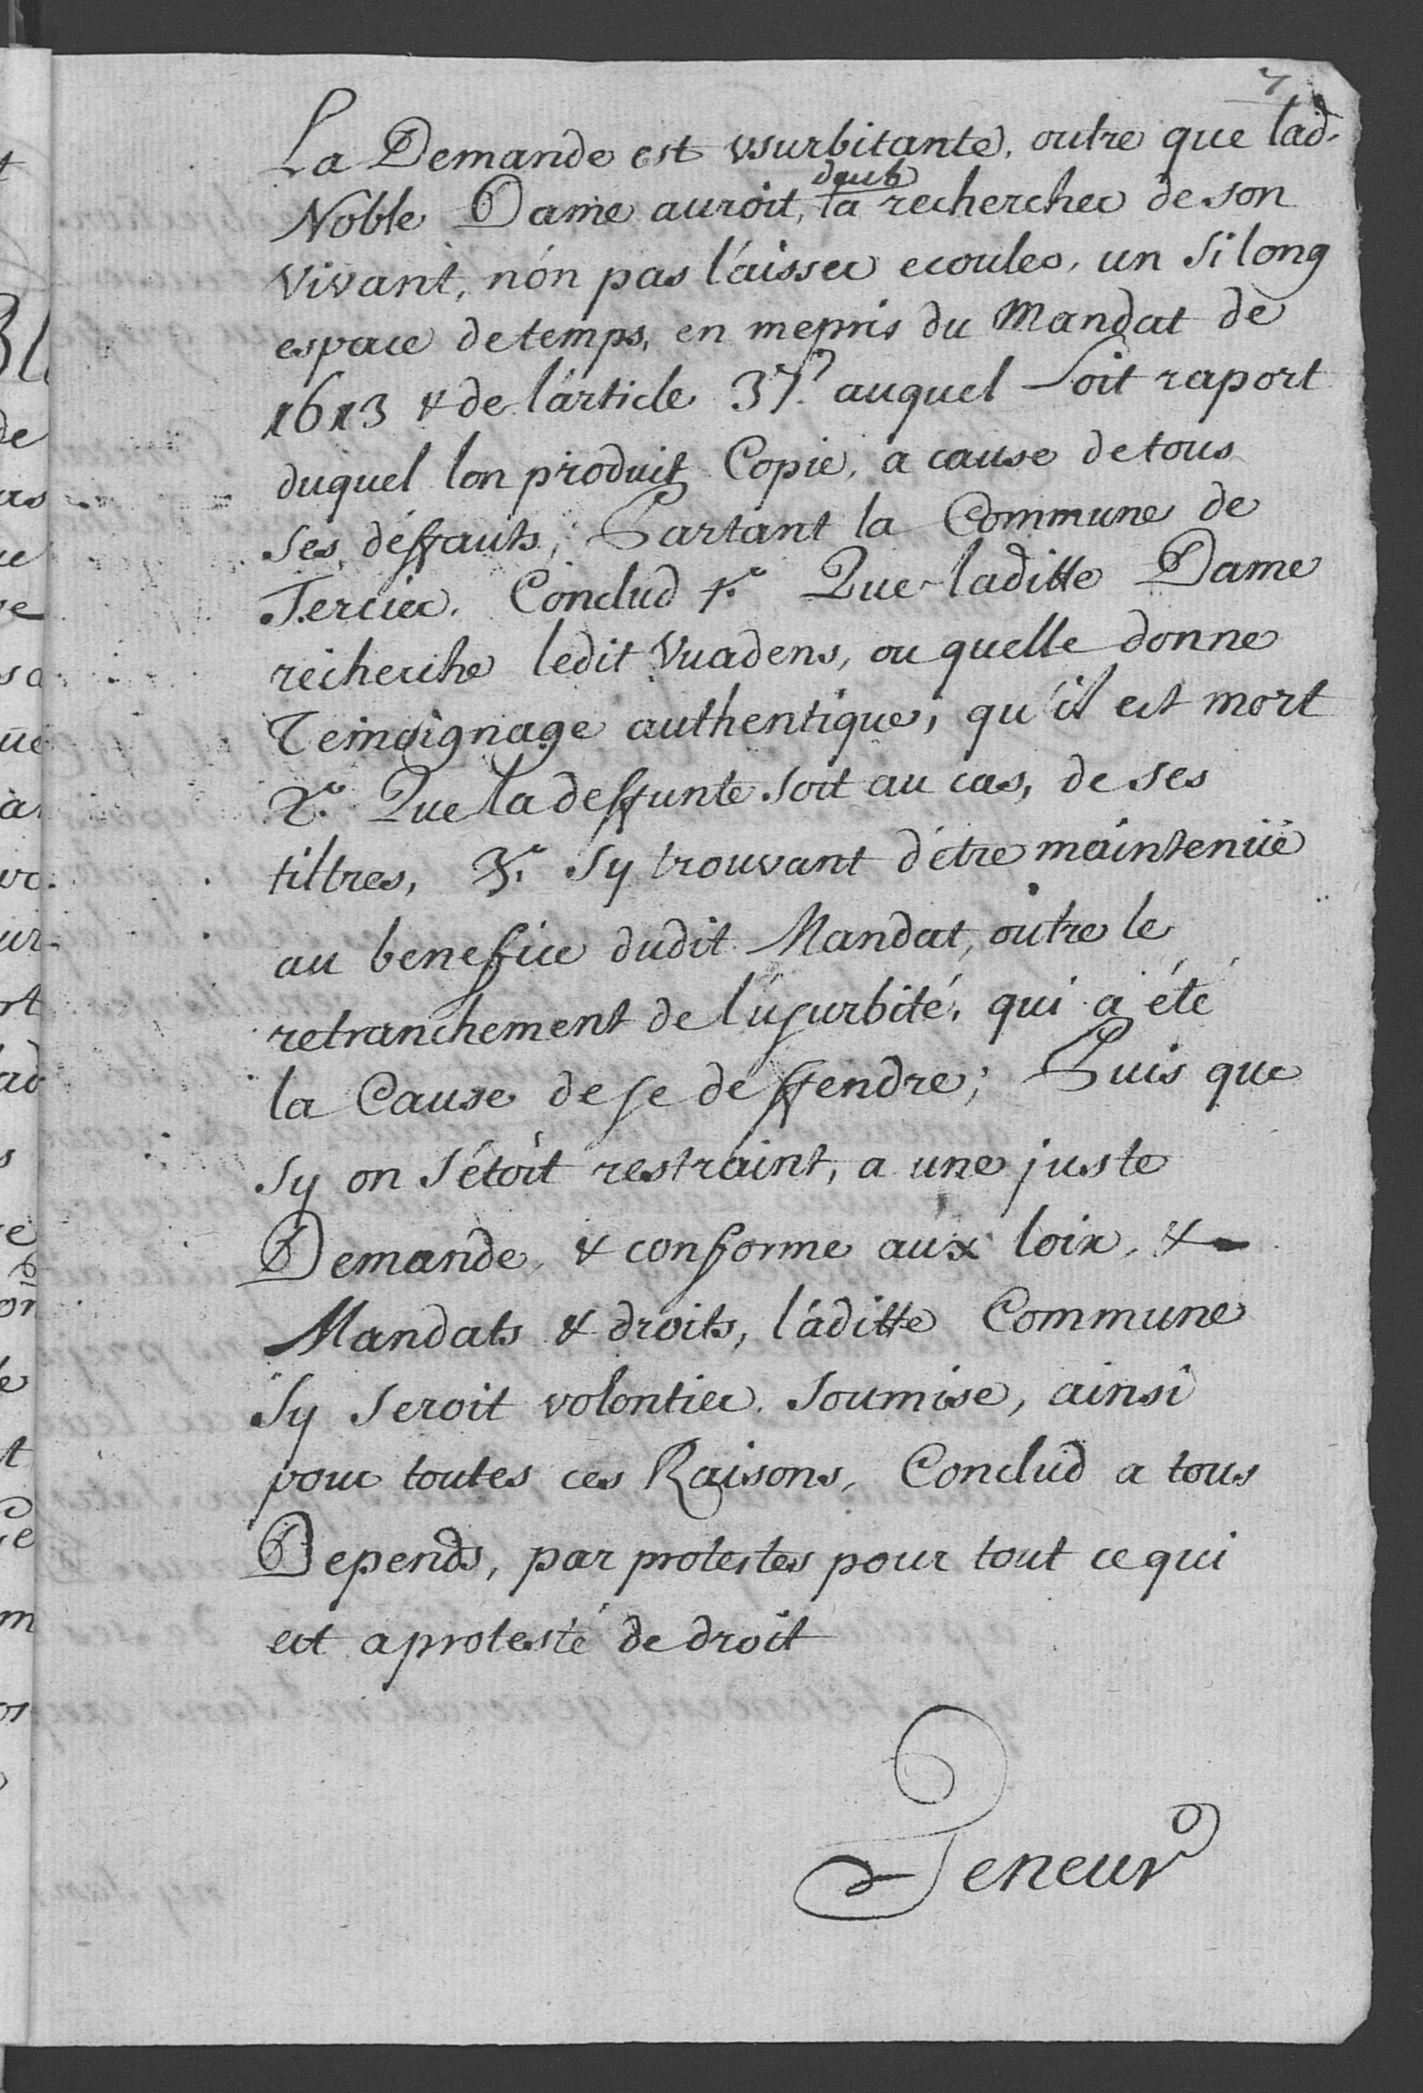 7
La Demande est vsurbitante, outre que lad.
Noble Dame auroit, deub la rechercher de son
vivant, nón pas láisser ecouler, un Si long
espace de temps, en mepris du Mandat de
1613 & de lárticle 37.e auquel Soit raport
duquel lon produit Copie, a cause de tous
Ses déffauts; Partant la Commune de
Tercier. Conclud 1.o Que laditte Dame
recherche ledit Vuadens, ou quelle donne
Temoignage authentique, qu'il est mort
2.o Que la deffunte Soit au cas, de ses
tiltres, 3.o Sy trouvant d'étre maintenüe
au benefice dudit Mandat, outre le
retranchement de lúsurbité, qui a été
la Cause de se deffendre; Puis que
Sy on S'étoit restraint, a une juste
Demande, & conforme aux loix, &
Mandats & droits, láditte Commune
Sy Seroit volontier Soumise, ainsi
pour toutes ces Raisons, Conclud a tous
Depends, par protestes pour tout ce qui
est a protesté de droit
Teneur